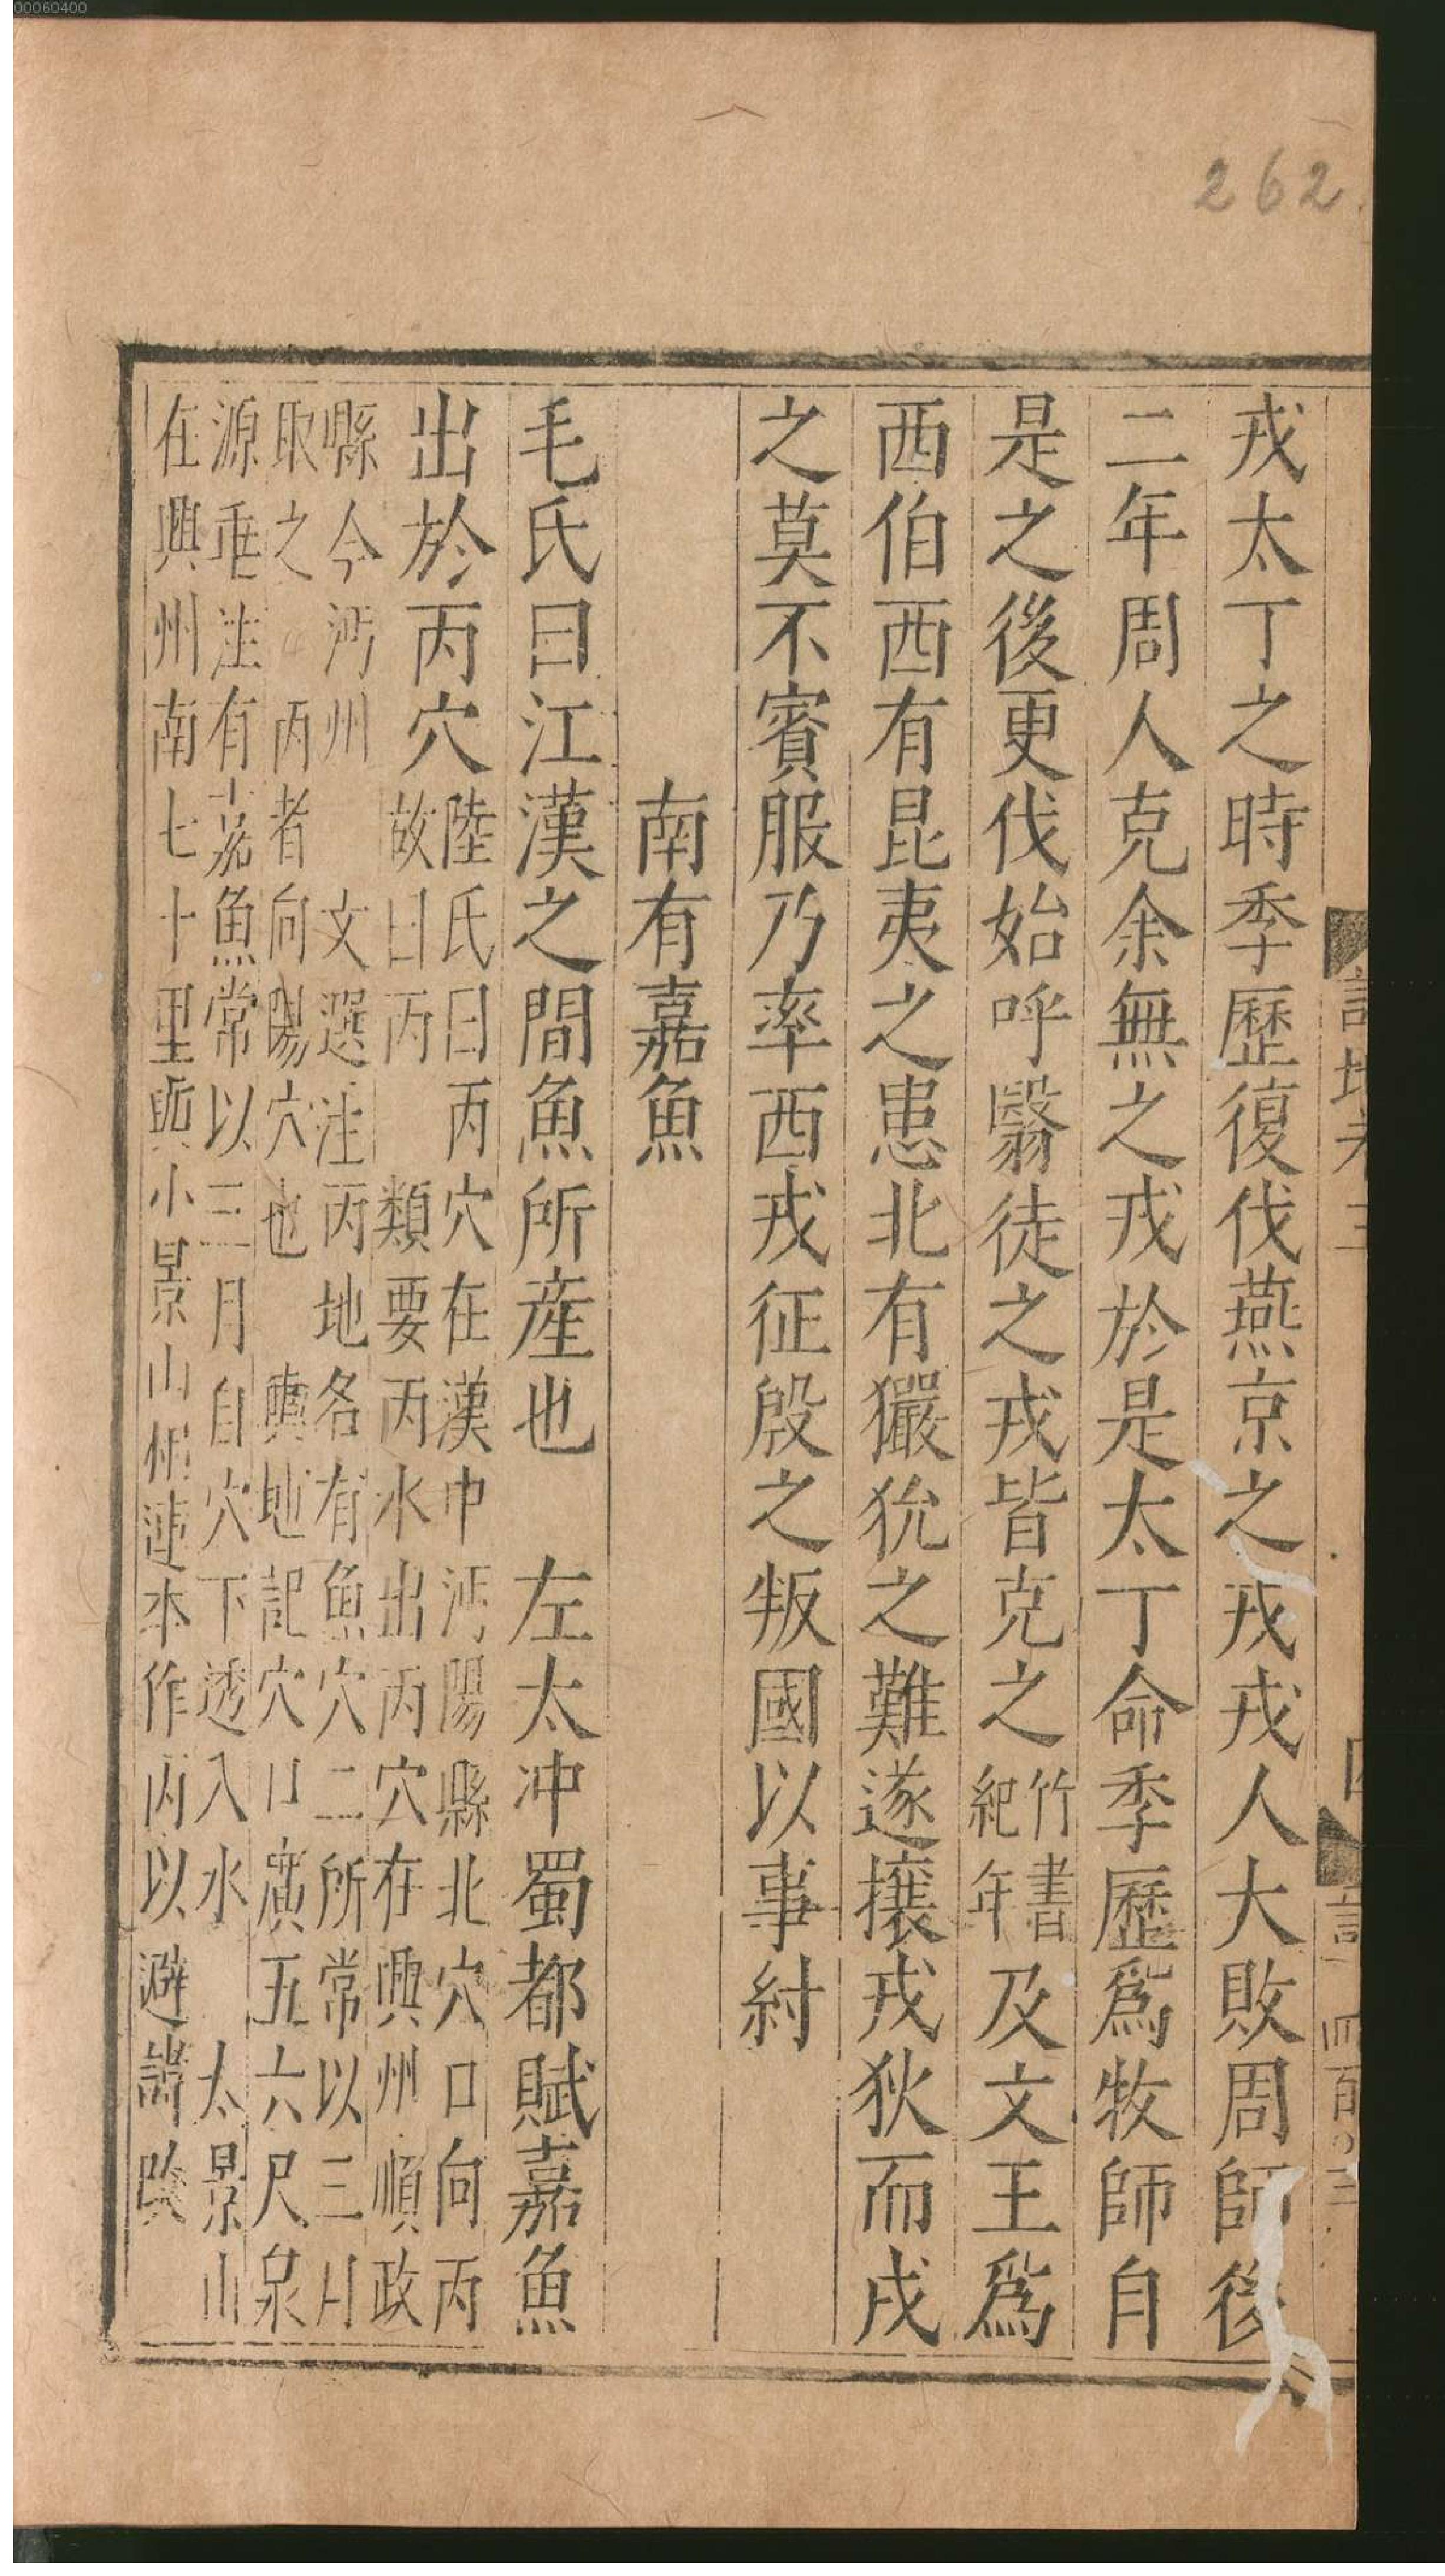 00060400
262
戎太丁之時季歷復伐燕京之戎戎人大敗周師後
二年周人克余無之戎於是太丁命季歷爲牧師自
是之後更伐始呼翳徒之戎皆克之竹書紀年及文王爲
西伯西有昆夷之患北有獫狁之難遂攘戎狄而戍
之莫不賓服乃率西戎征殷之叛國以事紂
南有嘉魚
毛氏曰江漢之間魚所產也 左太冲蜀都賦嘉魚
出於丙穴
陸氏曰丙穴在漢中沔陽縣北穴口向丙
故曰丙 類要丙水出丙穴在興州順政
縣今沔州 文選注丙地名有魚穴二所常以三月
取之 丙者向陽穴也 輿地記穴口廣五六尺泉
源垂注有嘉魚常以三月自穴下透入水 太景山
在興州南七十里與小景山相連本作丙以避諱改